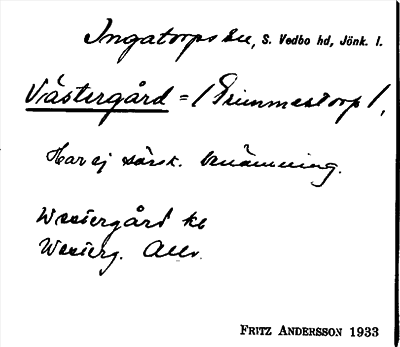 Ingatorps sn, S. Vedbo hd, Jönk. l.
Västergård = (Grimmestorp),
Har ej särsk. benämning.
Westergård kb
Westerg. Allv.
FRITZ ANDERSSON 1933